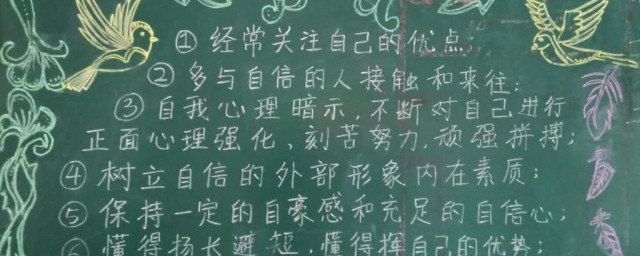 ①经常关注自己的优点；
②多与自信的人接触和来往；
③自我心理暗示，不断对自己进行
正面心理强化、刻苦努力，顽强拼搏；
④树立自信的外部形象内在素质；
⑤保持一定的自豪感和充足的自信心；
⑥懂得扬长避短，懂得挥自己的优势；